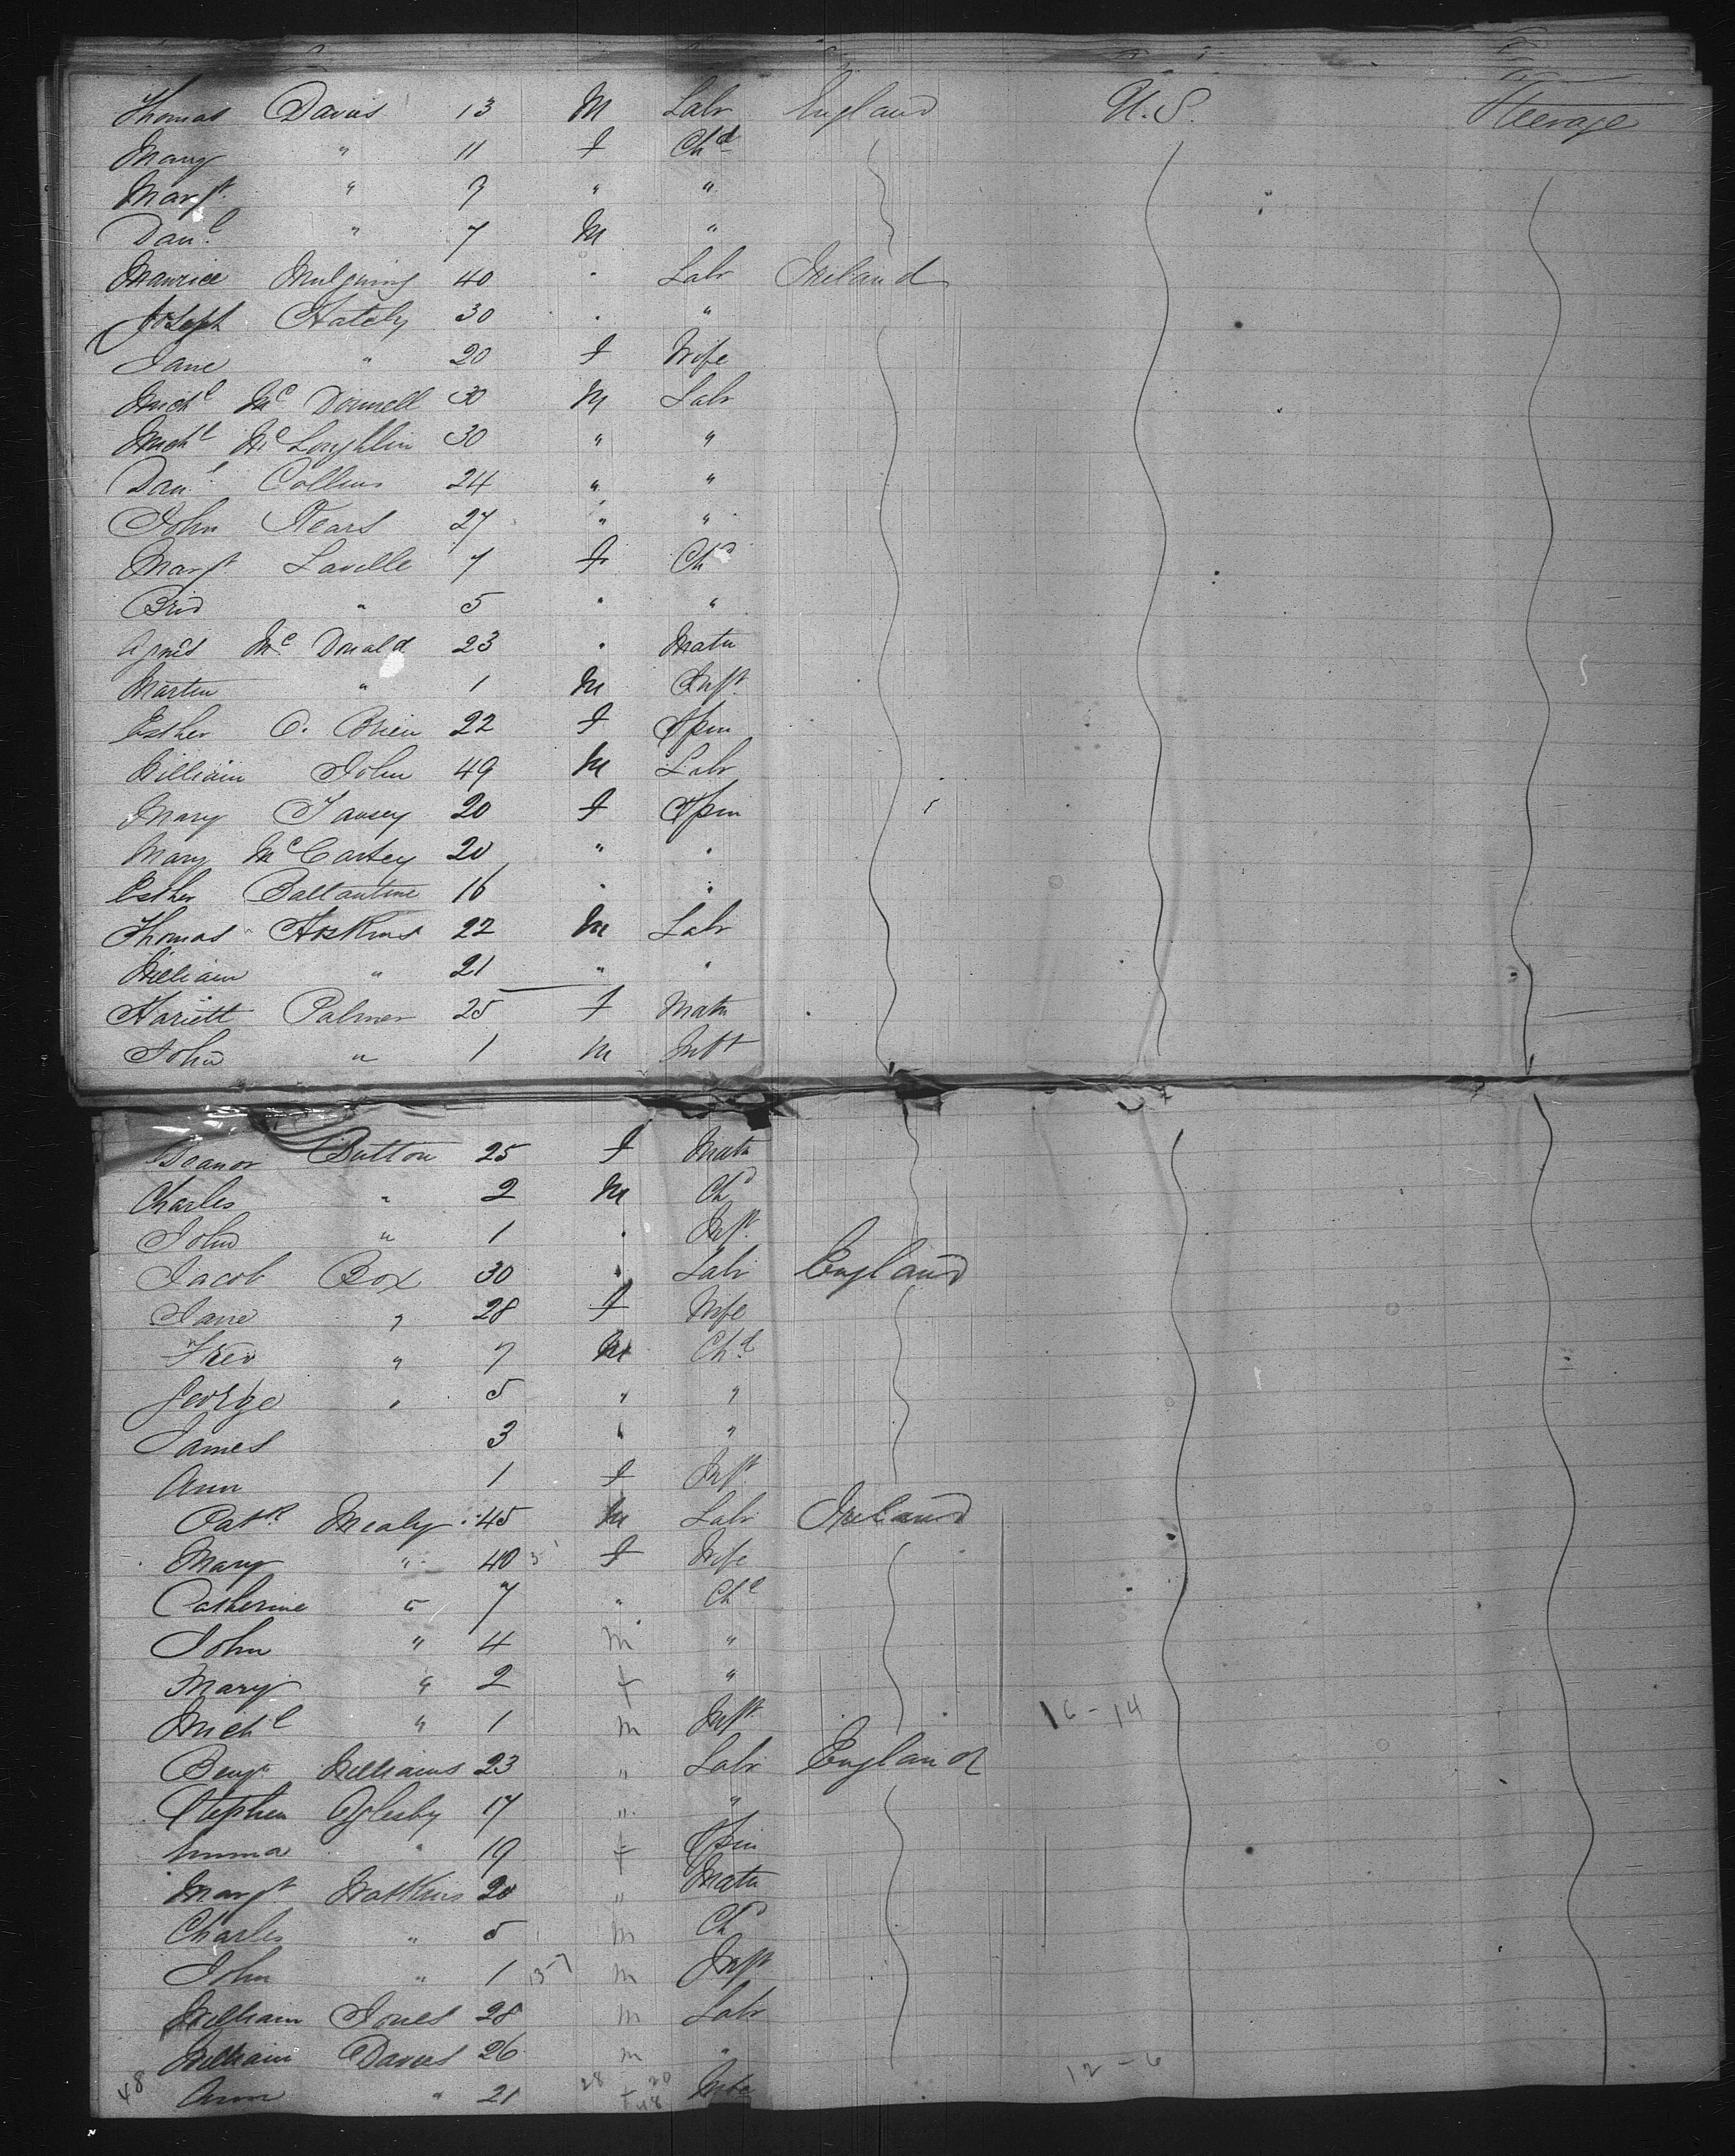 Thomas Davies 13 M Labr England U.S. Steerage
Mary " 11 f Chd
Margt " 9 " "
Danl " 7 M "
Maurice 40 " Labr Ireland
Joseph Hately 30 " "
Jane " 20 f Wife
Michl McDonnell 30 M Labr
Michl McLoughlin 30 " "
Danl Collins 24 " "
John 27 " "
Margt Lavelle 7 f Chd
Brid " 5 " "
Agnes McDonald 23 " Matn
Martin " 1 M Inft
Esther O. Brien 22 f Spin
William John 49 M Labr
Mary 20 f Spin
Mary McCartey 20 " "
Esther Ballantine 16 " "
Thomas Hoskins 22 M Labr
William " 21 " "
Hariett Palmer 25 f Matn
John " 1 M Inft
Button 25 f Matn
Charles " 2 M Chd
John " 1 " Inft
Jacob Box 30 " Labr England
Jane " 28 f Wife
Fred " 7 M Chd
George " 5 " "
James 3 " "
Ann 1 f Inft
Patk Mealy 45 M Labr Ireland
Mary " 40 f Wife
Catherine " 7 " Chd
John " 4 m "
Mary " 2 f "
Michl " 1 m Inft 16-14
Benjn Williams 23 " Labr England
Stephen Oglesby 17 " "
Emma " 19 f Spin
Margt Watkins 20 " Matn
Charles " 5 m Chd
John " 1 m Inft
William Jones 28 m Labr
William Davies 26 m "
48 Ann " 21 f Wife 12-6